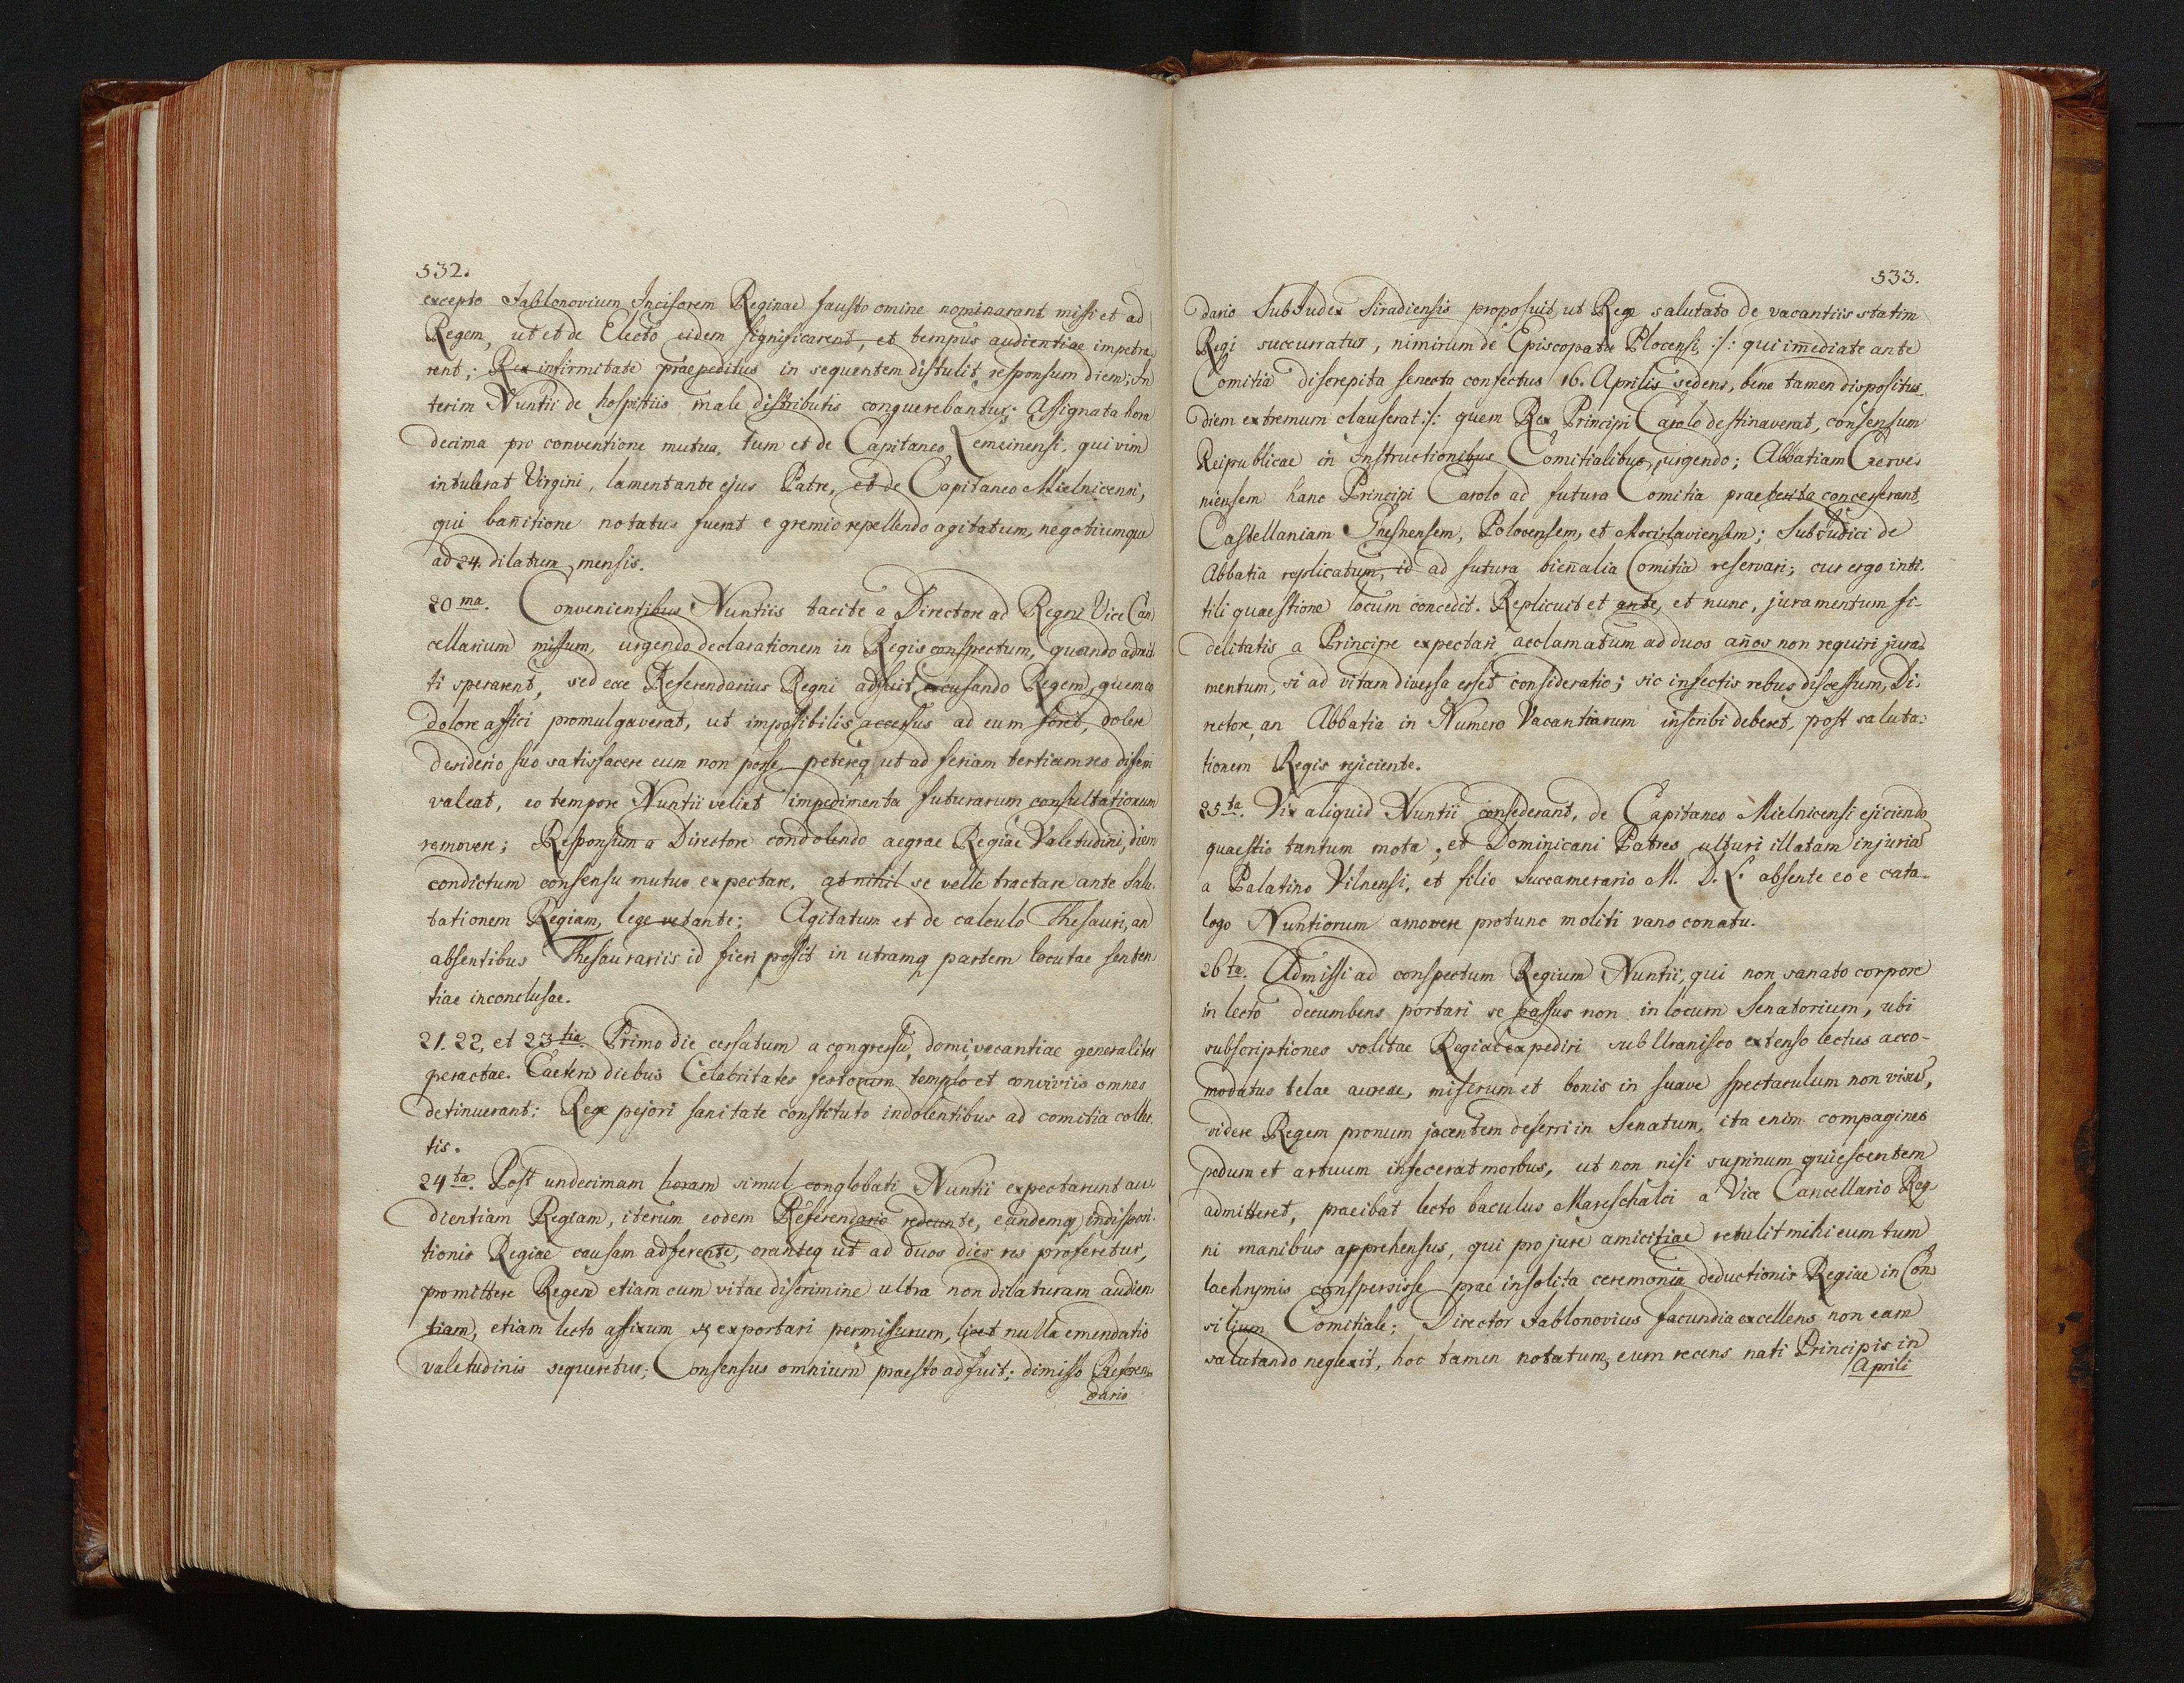 532.
excepto Jablonovium Incisorem Reginae fausto omine nominarant missi et ad
Regem, ut et de Electo eidem significarent, et tempus audientiae impetra-
rent; Rex infirmitate praepeditus in sequentem distulit responsum diem; In
terim Nuntii de hospitiis male distributis conquerebantur; Assignata hora
decima pro conventione mutua, tum et de Capitaneo qui vim
intulerat Virgini, lamentante ejus Patre, et de Capitaneo Mielnicensi,
qui bañitione notatus fuerat e gremio repellendo agitatum, negotiumque
ad 24. dilatum mensis.
20 ma. Convenientibus Nuntiis tacite a Directore ad Regni Vice Can
cellarium missum, urgendo declarationem in Regis conspectum, quando admit
ti sperarent, sed ecce Referendarius Regni adfuit, excusando Regem, quem eo
dolore affici promulgaverat, ut impossibilis accessus ad eum foret, dolere
desiderio suo satisfacere eum non posse, petereq ut ad feriam tertiam res differri
valeat, eo tempore Nuntii velint impedimenta futurarum consultationum
removere; Responsum a Directore condolendo aegrae Regiae Valetudini, diem
condictum consensu mutuo expectare, at nihil se velle tractare ante Salu
tationem Regiam, lege vetante; Agitatum et de calculo Thesauri, an
absentibus Thesaurariis id fieri possit in utramq partem locutae senten
tiae inconclusae.
21. 22, et 23 tia. Primo die cessatum a congressu, domi vacantiae generaliter
peractae. Caeteris diebus Celebritates festorum templo et conviviis omnes
detinuerant; Rege pejori sanitate constituto indolentibus ad comitia collec
tis.
24 ta. Post undecimam horam simul conglobati Nuntii expectarunt au
dientiam Regiam, iterum eodem Referendario redeunte, eandemq indisposi-
tionis Regiae causam adferente, oranteq ut ad duos dies res proferetur,
promittere Regem etiam cum vitae discrimine ultra non dilaturam audien
tiam, etiam lecto affixum se exportari permissurum, licet nulla emendatio
valetudinis sequeretur; Consensus omnium praesto adfuit; dimisso Referen-
dario
533.
dario SubJudex Siradiensis proposuit, ut Rege salutato de vacantiis statim
Regi succurratur, nimirum de Episcopatu Plocensi, :/: qui im̃ediate ante
Comitia discrepita senecta confectus 16. Aprilis sedens, bene tamen dispositus
diem extremum clauserat :/: quem Rex Principi Carolo destinaverat, consensum
Reipublicae in Instructionibus Comitialibus urgendo; Abbatiam Czerve-
niensem hanc Principi Carolo ad futura Comitia praeterita concesserant,
Castellaniam Gnesnensem, Polocensem, et Mscislaviensem; SubJudici de
Abbatia replicatum, id ad futura bieñalia Comitia reservari; cur ergo inti-
tili quaestione locum concedit. Replicuit et ante, et nunc, juramentum fi-
delitatis a Principe expectari acclamatum ad duos años non requiri jura-
mentum, si ad vitam diversa esset consideratio; sic infectis rebus discessum, Di-
rectore, an Abbatia in Numero Vacantiarum inscribi deberet, post saluta-
tionem Regis rejiciente.
25 ta. Vix aliquid Nuntii consederant, de Capitaneo Mielnicensi ejiciendo
quaestio tantum mota; et Dominicani Patres ulturi illatam injuriã
a Palatino Vilnensi, et filio Succamerario M. D. L. absente eo e cata-
logo Nuntiorum amovere protunc moliti vano conatu.
26 ta. Admissi ad conspectum Regium Nuntii, qui non sanato corpore
in lecto decumbens portari se passus non in locum Senatorium, ubi
subscriptiones solitae Regiae expediri sub Uranisco extenso lectus acco-
modatus telae aureae, miserum et bonis in suave spectaculum non visus,
videre Regem pronum jacentem deferri in Senatum, ita enim compagines
pedum et artuum infecerat morbus, ut non nisi supinum quiescentem
admitteret, praeibat lecto baculus Mareschalci a Vice Cancellario Reg-
ni manibus apprehensus, qui pro jure amicitiae retulit mihi eum tum
lachrymis conspersisse prae insolita ceremonia deductionis Regiae in Con
silium Comitiale; Director Jablonovius facundia excellens non eam
salutando neglexit, hoc tamen notatum, eum recens nati Principis in
Aprili